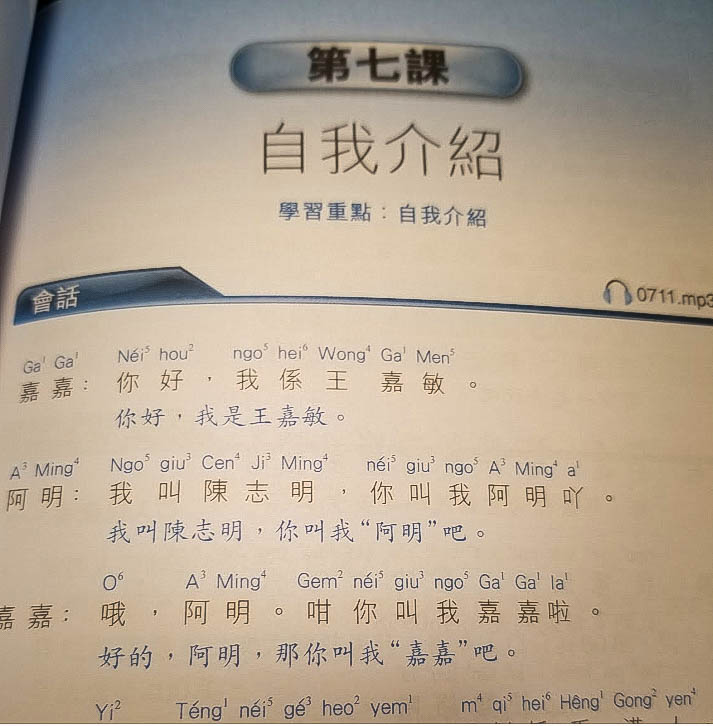 第七課
自我介紹
學習重點：自我介紹
會話
0711.mp3
Ga¹ Ga¹ Néi⁵ hou² ngo⁵ hei⁶ Wong⁴ Ga¹ Men⁵
嘉嘉：你好，我係王嘉敏。
你好，我是王嘉敏。
A³ Ming⁴ Ngo⁵ giu³ Cen⁴ Ji³ Ming⁴ néi⁵ giu³ ngo⁵ A³ Ming⁴ a¹
阿明：我叫陳志明，你叫我阿明吖。
我叫陳志明，你叫我“阿明”吧。
O⁶ A³ Ming⁴ Gem² néi⁵ giu³ ngo⁵ Ga¹ Ga¹ la¹
嘉嘉：哦，阿明。咁你叫我嘉嘉啦。
好的，阿明，那你叫我“嘉嘉”吧。
Yi² Téng¹ néi⁵ gé³ heo² yem¹ m⁴ qi⁵ hei⁶ Hêng¹ Gong² yen⁴